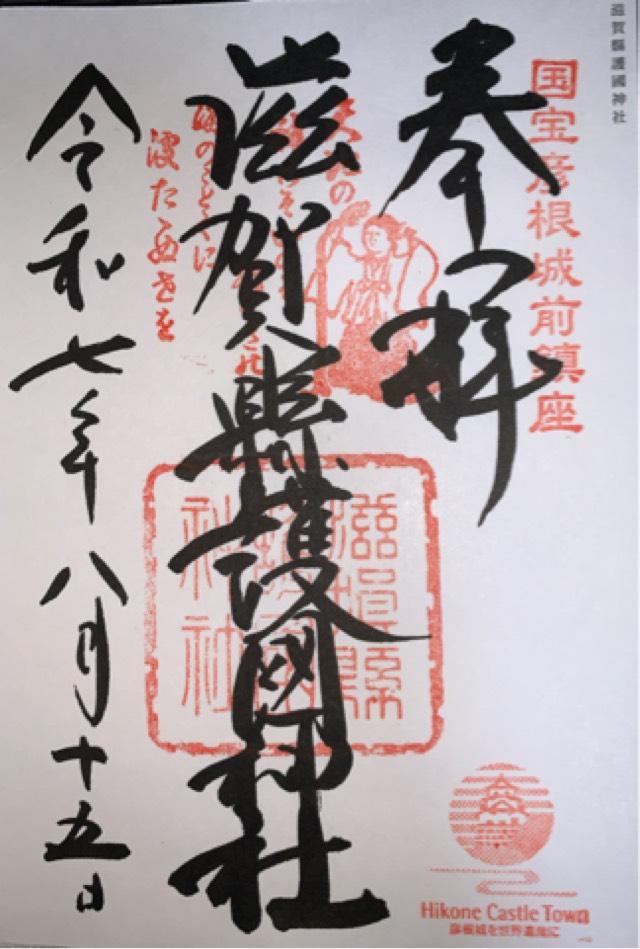 滋賀縣護國神社
国宝彦根城前鎮座
奉拝
滋賀縣護國神社
波たゝぬさを
令和七年八月十五日
滋賀縣
護國
神社
Hikone Castle Town
彦根城を世界遺産に